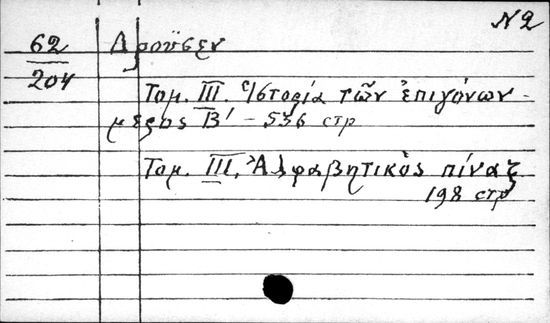 N2
62
204
Δροΰσεν
Τομ. III. Ἱστορία τῶν ἐπιγόνων -
μέρος Β' - 536 стр
Τομ. III, Ἀλφαβητικὸς πίναξ
198 стр